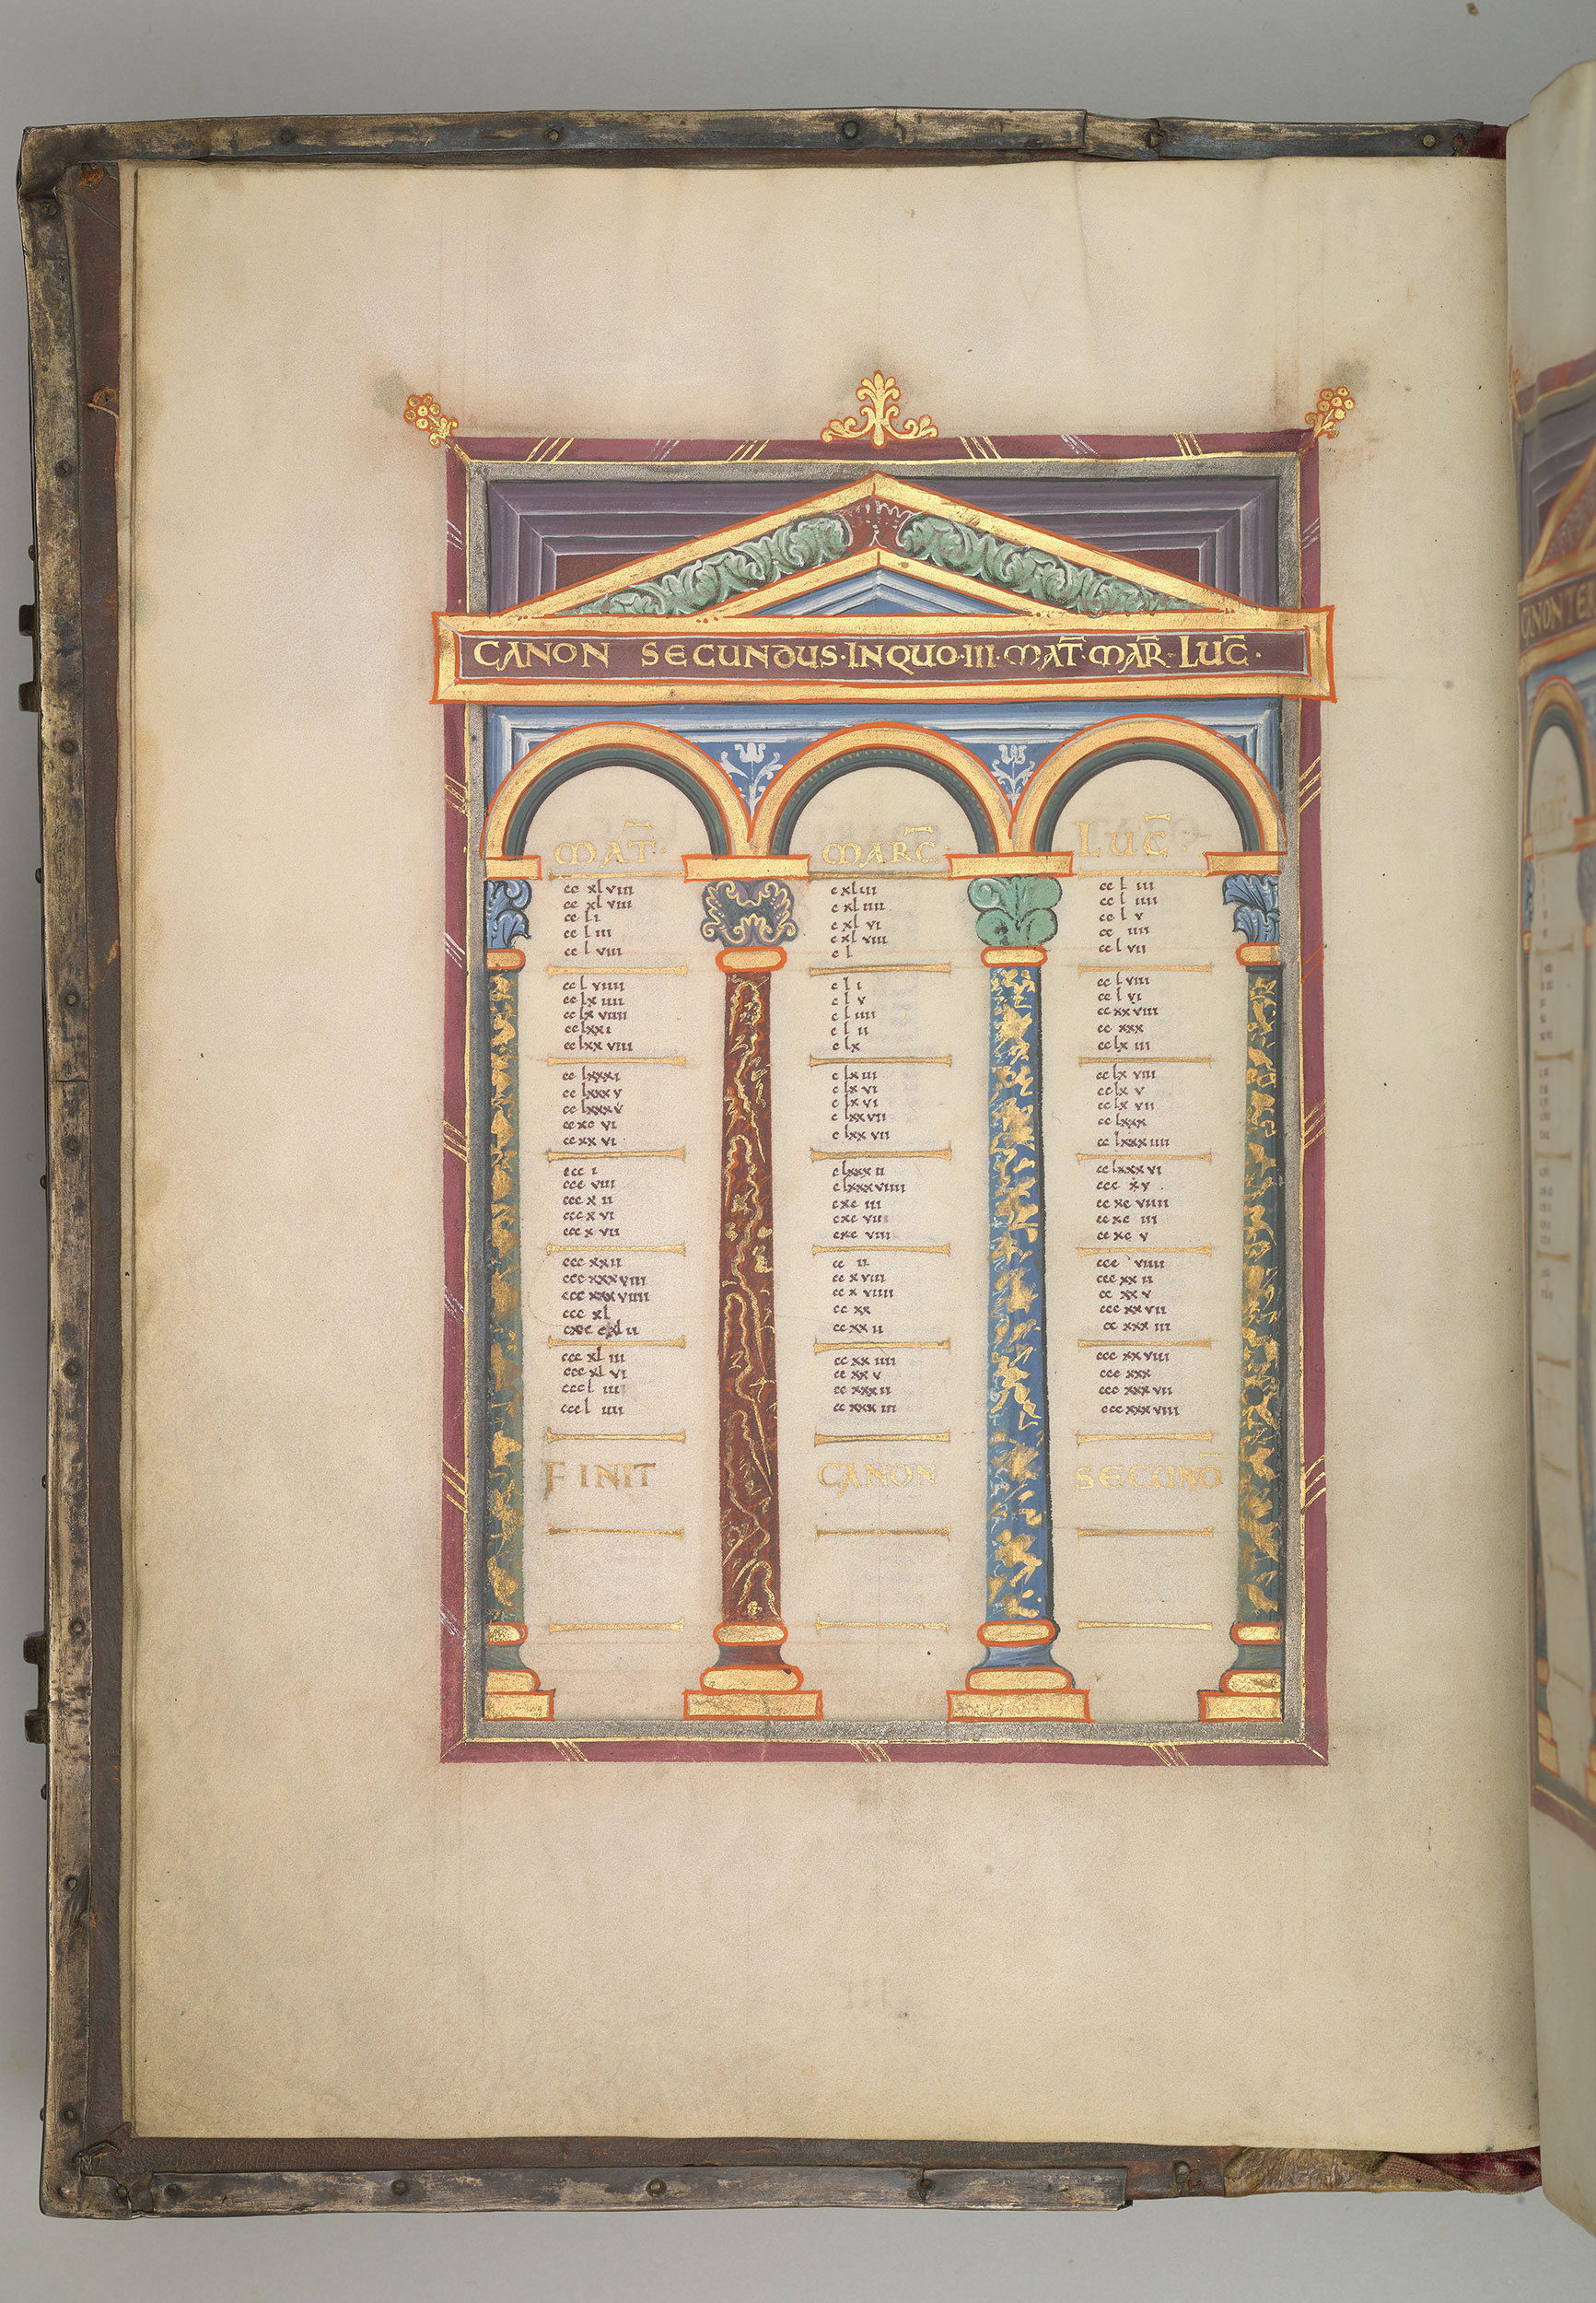 CANON SECUNDUS·INQUO·III·MAT̅·MAR̅·LUC̅·
MAT̅· MARC̅· LUC̅·
cc xl viii c xl iii cc l iii
cc xl viii c xl iiii cc l iiii
cc l i c xl vi cc l v
cc l iii c xl viii cc iiii
cc l viii c l cc l vii
cc l viiii c l i cc l viii
cc lx iiii c l v cc l vi
cc lx viiii c l iiii cc xx viii
cc lxx i c l ii cc xxx
cc lxx viii c lx cc lx iii
cc lxxx i c lx iii cc lx viii
cc lxxx v c lx vi cc lx v
cc lxxx v c lx vi cc lx vii
cc xc vi c lxx vii cc lxxx
cc xx vi c lxx vii cc lxxx iiii
ccc i c lxxx ii cc lxxx vi
ccc viii c lxxx viiii ccc x v
ccc x ii c xc iii cc xc viiii
ccc x vi c xc vii cc xc iii
ccc x vii c xc viii cc xc v
ccc xx ii cc ii ccc viiii
ccc xxx viii cc x viii ccc xx ii
ccc xxx viiii cc x viiii cc xx v
ccc xl cc xx ccc xx vii
cc xx ii cc xxx iii
ccc xl iii cc xx iiii ccc xx viii
ccc xl vi cc xx v ccc xxx
ccc l iii cc xxx ii ccc xxx vii
ccc l iiii cc xxx iii ccc xxx viii
FINIT CANON SECUND̅
CANON TE